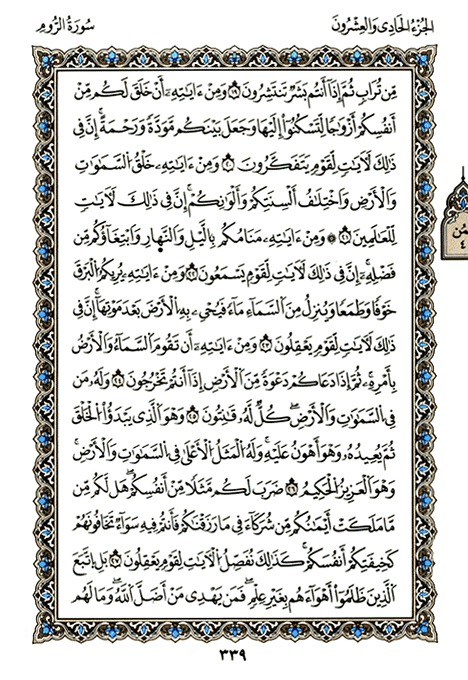 الجُزْءُ الحَادِى وَالعِشْرُونَ
سُورَةُ الرُّومِ
مِّن تُرَابٍ ثُمَّ إِذَآ أَنتُم بَشَرٌ تَنتَشِرُونَ ۝٢٠ وَمِنْ ءَايَٰتِهِۦٓ أَنْ خَلَقَ لَكُم مِّنْ
أَنفُسِكُمْ أَزْوَٰجًا لِّتَسْكُنُوٓا۟ إِلَيْهَا وَجَعَلَ بَيْنَكُم مَّوَدَّةً وَرَحْمَةً ۚ إِنَّ فِى
ذَٰلِكَ لَءَايَٰتٍ لِّقَوْمٍ يَتَفَكَّرُونَ ۝ وَمِنْ ءَايَٰتِهِۦ خَلْقُ السَّمَٰوَٰتِ
وَالْأَرْضِ وَاخْتِلَٰفُ أَلْسِنَتِكُمْ وَأَلْوَٰنِكُمْ ۚ إِنَّ فِى ذَٰلِكَ لَءَايَٰتٍ
لِّلْعَٰلَمِينَ ۝ وَمِنْ ءَايَٰتِهِۦ مَنَامُكُم بِالَّيْلِ وَالنَّهَارِ وَابْتِغَآؤُكُم مِّن
فَضْلِهِۦٓ ۚ إِنَّ فِى ذَٰلِكَ لَءَايَٰتٍ لِّقَوْمٍ يَسْمَعُونَ ۝ وَمِنْ ءَايَٰتِهِۦ يُرِيكُمُ الْبَرْقَ
خَوْفًا وَطَمَعًا وَيُنَزِّلُ مِنَ السَّمَآءِ مَآءً فَيُحْىِۦ بِهِ الْأَرْضَ بَعْدَ مَوْتِهَآ ۚ إِنَّ فِى
ذَٰلِكَ لَءَايَٰتٍ لِّقَوْمٍ يَعْقِلُونَ ۝ وَمِنْ ءَايَٰتِهِۦٓ أَن تَقُومَ السَّمَآءُ وَالْأَرْضُ
بِأَمْرِهِۦ ۚ ثُمَّ إِذَا دَعَاكُمْ دَعْوَةً مِّنَ الْأَرْضِ إِذَآ أَنتُمْ تَخْرُجُونَ ۝ وَلَهُۥ مَن
فِى السَّمَٰوَٰتِ وَالْأَرْضِ ۖ كُلٌّ لَّهُۥ قَٰنِتُونَ ۝ وَهُوَ الَّذِى يَبْدَؤُا۟ الْخَلْقَ
ثُمَّ يُعِيدُهُۥ وَهُوَ أَهْوَنُ عَلَيْهِ ۚ وَلَهُ الْمَثَلُ الْأَعْلَىٰ فِى السَّمَٰوَٰتِ وَالْأَرْضِ ۚ
وَهُوَ الْعَزِيزُ الْحَكِيمُ ۝ ضَرَبَ لَكُم مَّثَلًا مِّنْ أَنفُسِكُمْ ۖ هَل لَّكُم مِّن
مَّا مَلَكَتْ أَيْمَٰنُكُم مِّن شُرَكَآءَ فِى مَا رَزَقْنَٰكُمْ فَأَنتُمْ فِيهِ سَوَآءٌ تَخَافُونَهُمْ
كَخِيفَتِكُمْ أَنفُسَكُمْ ۚ كَذَٰلِكَ نُفَصِّلُ الْءَايَٰتِ لِقَوْمٍ يَعْقِلُونَ ۝ بَلِ اتَّبَعَ
الَّذِينَ ظَلَمُوٓا۟ أَهْوَآءَهُم بِغَيْرِ عِلْمٍ ۖ فَمَن يَهْدِى مَنْ أَضَلَّ اللَّهُ ۖ وَمَا لَهُم
٣٣٩